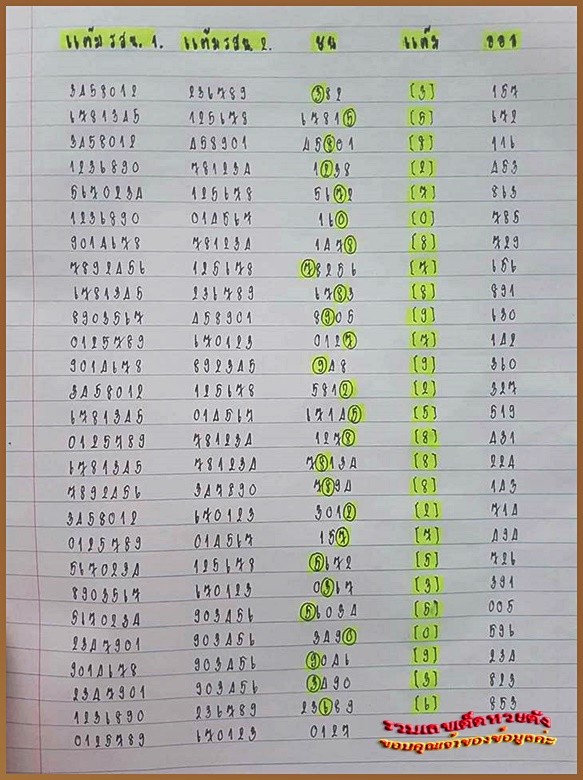 แต้มรสน. 1. แต้มรสน 2. ชน แต้ม ออก
3458012 236789 382 (3) 157
6781345 125678 67815 (5) 672
3458012 458901 45801 (8) 116
1236890 781234 1238 (2) 453
5670234 125678 5672 (7) 863
1236890 014567 160 (0) 785
9014678 781234 1478 (8) 729
7892456 125678 78256 (7) 656
6781345 236789 6783 (8) 891
8903567 458901 8905 (9) 630
0125789 670123 0127 (7) 142
9014678 892345 948 (9) 360
3458012 125678 5812 (2) 327
6781345 014567 67145 (5) 519
0125789 781234 1278 (8) 431
6781345 781234 78134 (8) 224
7892456 347890 7894 (8) 143
3458012 670123 3012 (2) 714
0125789 014567 157 (7) 434
5670234 125678 5672 (5) 726
8903567 670123 0367 (3) 391
5670234 903456 56034 (5) 005
2347901 903456 3490 (0) 596
9014678 903456 9046 (9) 234
2347901 903456 3490 (3) 823
1236890 236789 23689 (6) 853
0125789 670123 0127
รวมเลขเด็ดหวยดัง
ขอบคุณเจ้าของข้อมูลค่ะ